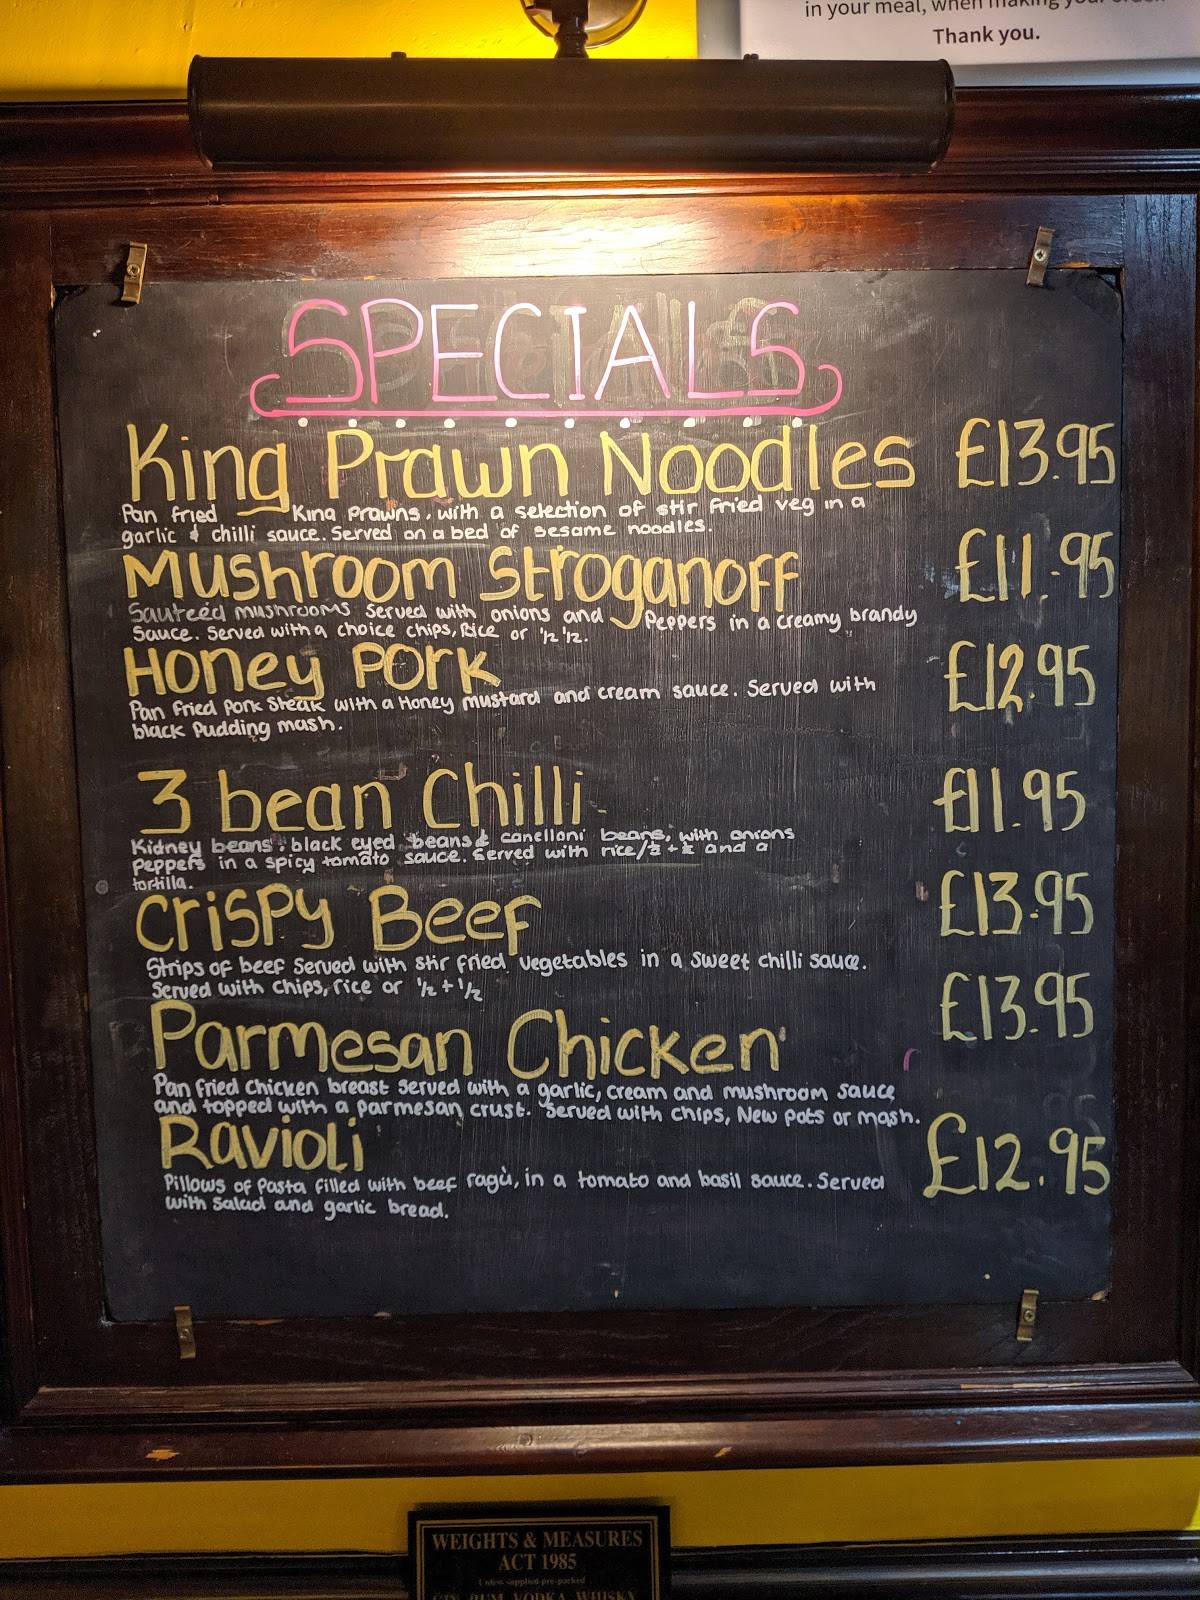 in your meal, when making your order.
Thank you.
SPECIALS
King Prawn Noodles £13.95
Pan fried King Prawns, with a selection of stir fried veg in a
garlic & chilli sauce. Served on a bed of sesame noodles.
Mushroom Stroganoff £11.95
Sauteéd mushrooms served with onions and Peppers in a creamy brandy
Sauce. Served with a choice chips, Rice or 1/2 1/2.
Honey Pork £12.95
Pan fried Pork Steak with a Honey mustard and cream sauce. Served with
black Pudding mash.
3 bean Chilli £11.95
Kidney beans, black eyed beans & canelloni beans, with onions
peppers in a spicy tomato sauce. Served with rice/½ + ½ and a
tortilla.
Crispy Beef £13.95
Strips of beef Served with stir fried vegetables in a sweet chilli sauce.
Served with chips, rice or 1/2 + 1/2
Parmesan Chicken £13.95
Pan fried Chicken breast served with a garlic, cream and mushroom sauce
and topped with a parmesan crust. Served with chips, New pots or mash.
Ravioli £12.95
Pillows of Pasta filled with beef ragù, in a tomato and basil sauce. Served
with Salad and garlic bread.
WEIGHTS & MEASURES
ACT 1985
Unless supplied pre-packed
GIN, RUM, VODKA, WHISKY